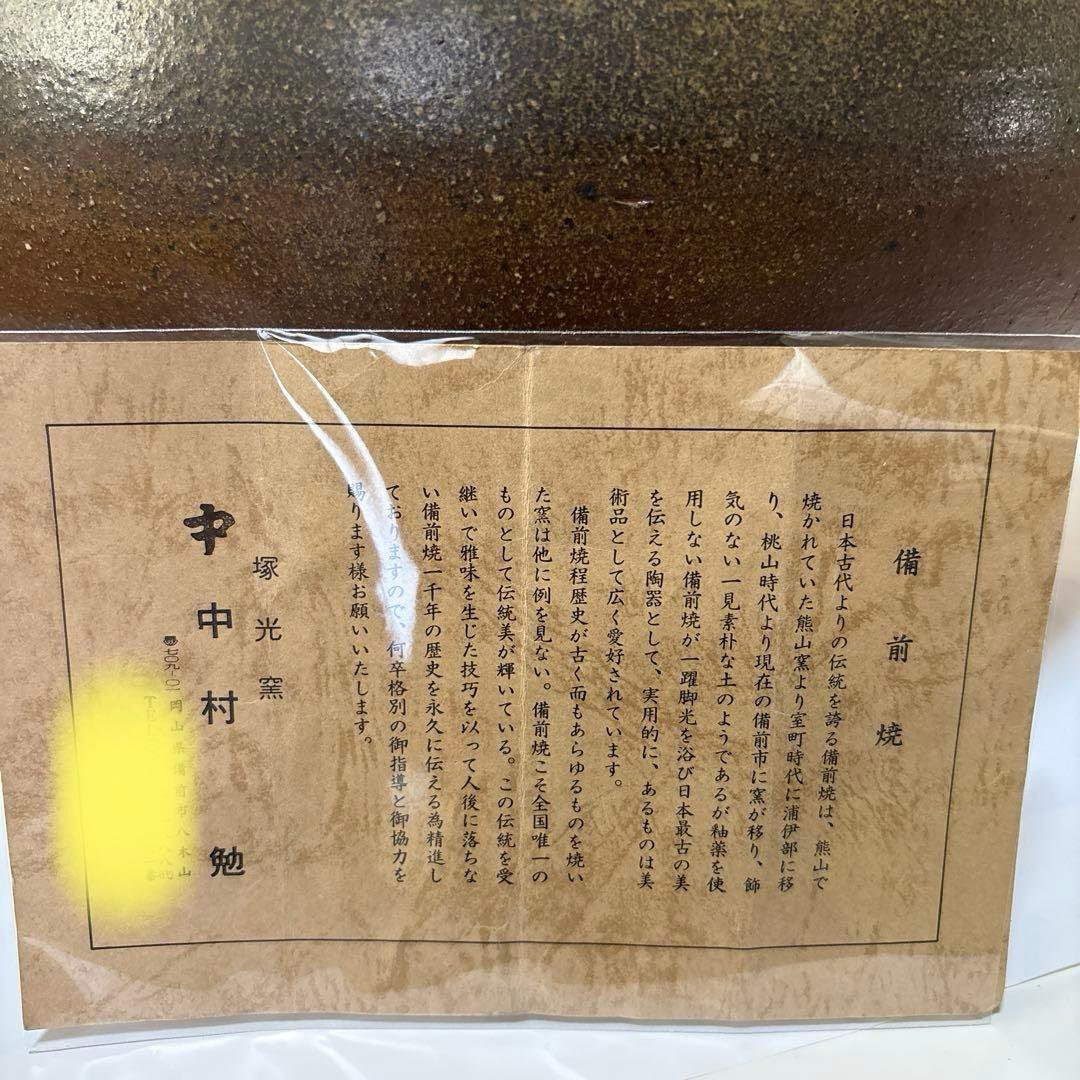 備前焼
日本古代よりの伝統を誇る備前焼は、熊山で
焼かれていた熊山窯より室町時代に浦伊部に移
り、桃山時代より現在の備前市に窯が移り、飾
気のない一見素朴な土のようであるが釉薬を使
用しない備前焼が一躍脚光を浴び日本最古の美
を伝える陶器として、実用的に、あるものは美
術品として広く愛好されています。
備前焼程歴史が古く而もあらゆるものを焼い
た窯は他に例を見ない。備前焼こそ全国唯一の
ものとして伝統美が輝いている。この伝統を受
継いで雅味を生じた技巧を以って人後に落ちな
い備前焼一千年の歴史を永久に伝える為精進し
ておりますので、何卒格別の御指導と御協力を
賜ります様お願いいたします。
塚光窯
中村 勉
七〇九-〇一 岡山県備前市八木山